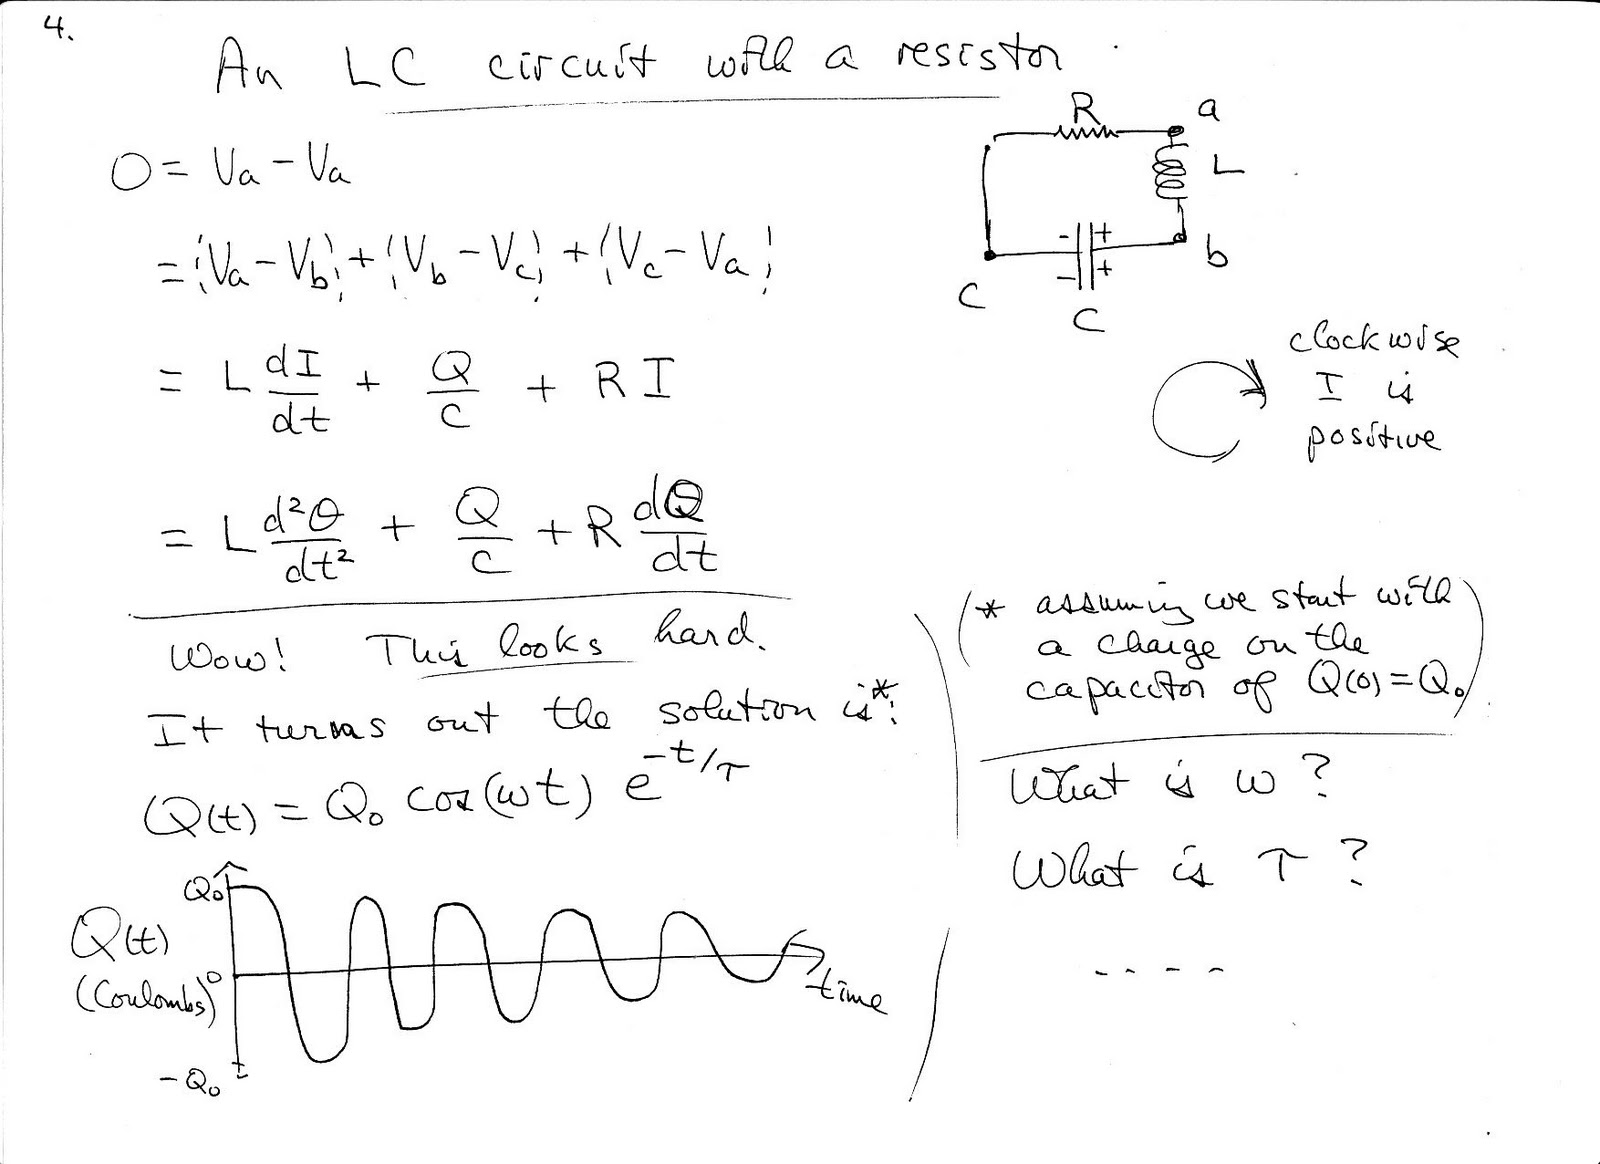 4.
An LC circuit with a resistor
0 = Va - Va
= (Va - Vb) + (Vb - Vc) + (Vc - Va)
= L dI/dt + Q/C + RI
= L d²Q/dt² + Q/C + R dQ/dt
R
a
L
b
- +
- +
c
C
clockwise
I is
positive
Wow! This looks hard.
It turns out the solution is*:
Q(t) = Q₀ cos(ωt) e^(-t/τ)
(* assuming we start with
a charge on the
capacitor of Q(0) = Q₀)
What is ω?
What is τ?
- - - -
Q₀
Q(t)
(Coulombs)
0
-Q₀
time